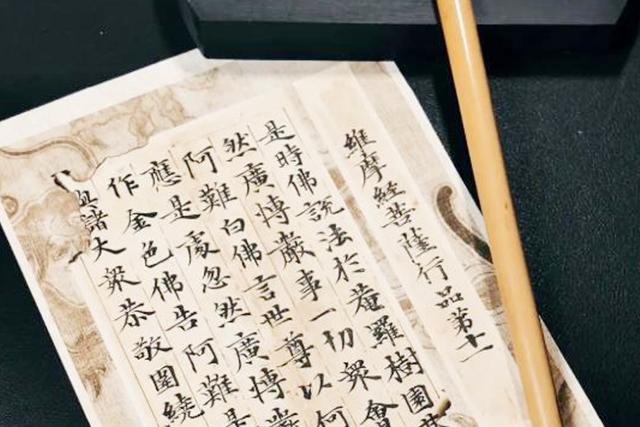 維摩經菩薩行品第十一
是時佛說法於菴羅樹園其
然廣博嚴事一切衆會
阿難白佛言世尊以何
應是處忽然廣博嚴
作金色佛告阿難是
諸大衆恭敬圍繞